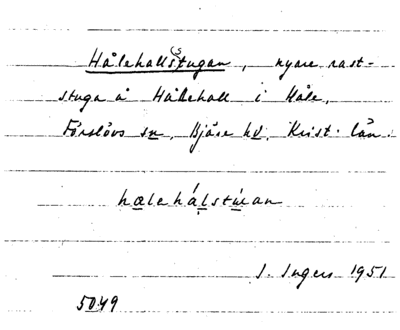 Hålehallstugan, nyare rast-
stuga å Hållehall i Håle,
Förslövs sn, Bjäre hd, Krist. län.
hålehálstúan
I. Ingers 1951
5049